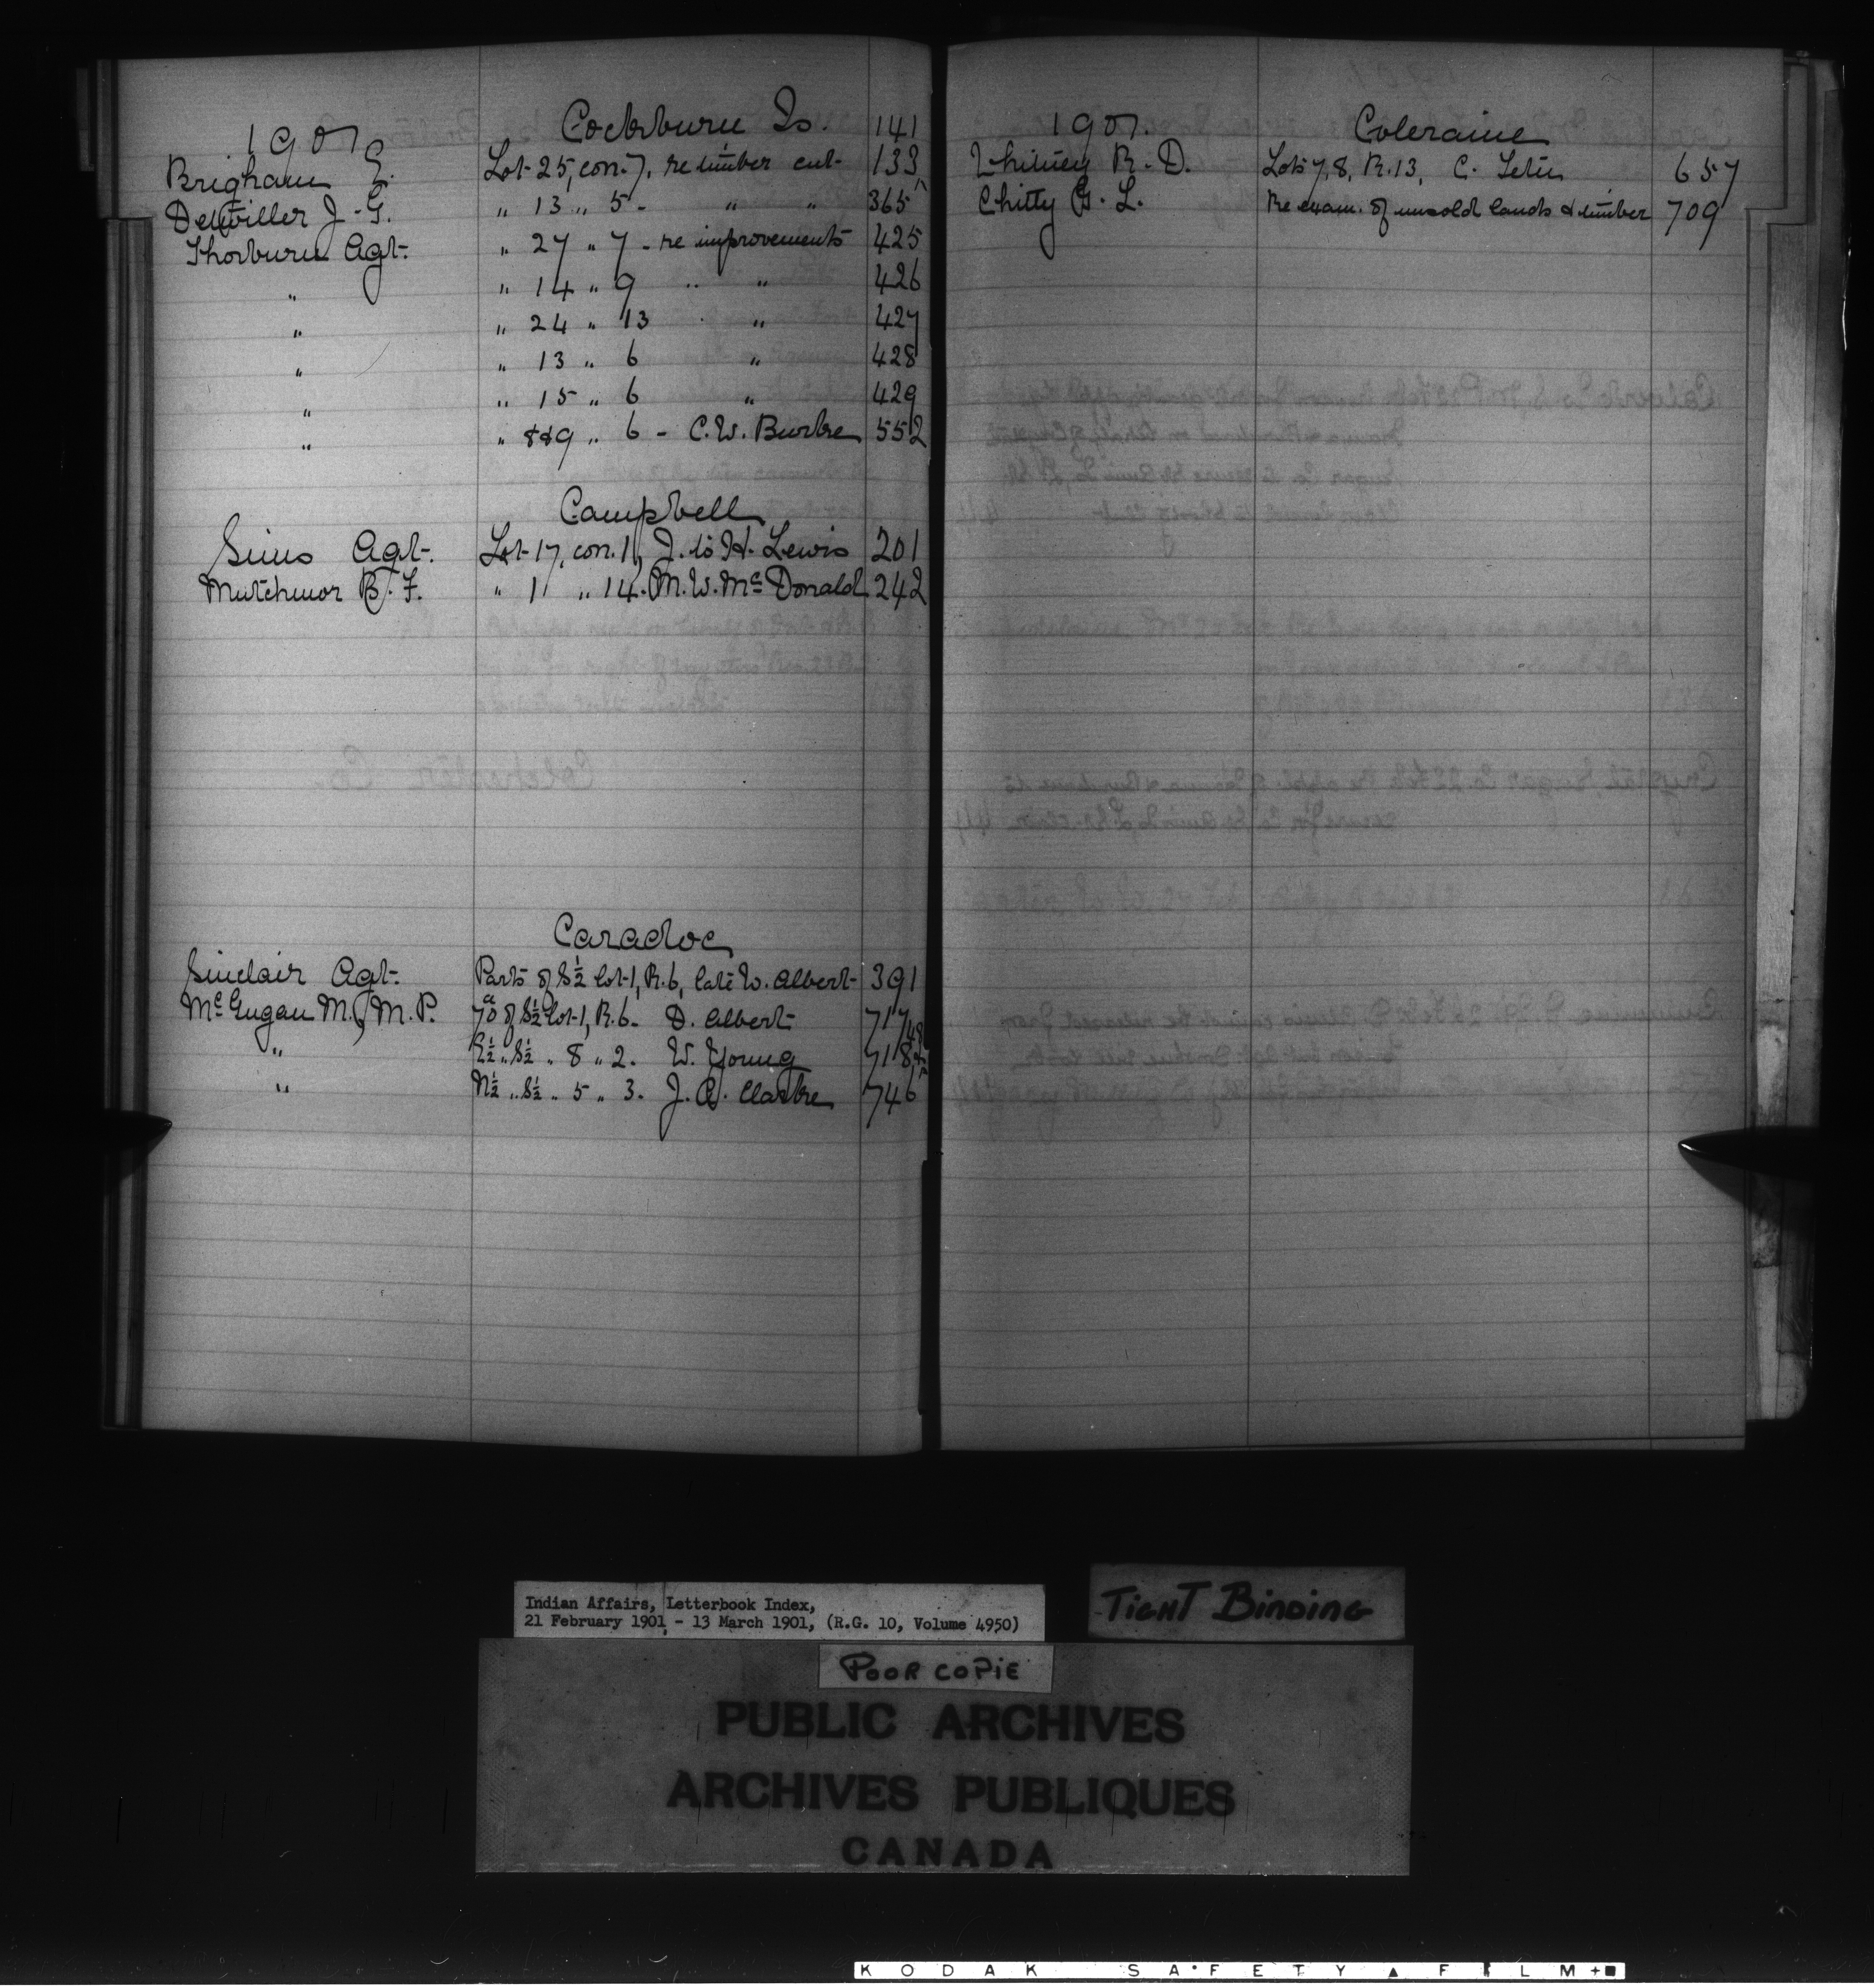 1901 Cockburn Is. 141
Brigham E. Lot 25, con. 7, re timber cut 133
Detwiller J. G. " 13 " 5 - " " 365
Thorburn Agt. " 27 " 7 - re improvements 425
" " 14 " 9 " " 426
" " 24 " 13 " 427
" " 13 " 6 " 428
" " 15 " 6 " 429
" " 8&9 " 6 - C. W. Burke 552
Campbell
Sims Agt. Lot 17, con. 11, J. to H. Lewis 201
Mutchmor B. F. " 11 " 14. M. W. McDonald 242
Caradoc
Sinclair Agt. Parts of S½ lot 1, R. 6, late W. Albert 391
McGugan M., M.P. 70a of S½ Lot 1, R. 6 - D. Albert 717
" " S½ " 8 " 2. W. Young 718
" N½ " S½ " 5 " 3. J. A. Clarke 746
1901. Coleraine
Whitney R. D. Lots 7, 8, R. 13, C. 657
Chitty G. L. Re exam. of unsold lands & timber 709
Indian Affairs, Letterbook Index,
21 February 1901 - 13 March 1901, (R.G. 10, Volume 4950)
TIGHT BINDING
POOR COPIE
PUBLIC ARCHIVES
ARCHIVES PUBLIQUES
CANADA
KODAK SAFETY FILM